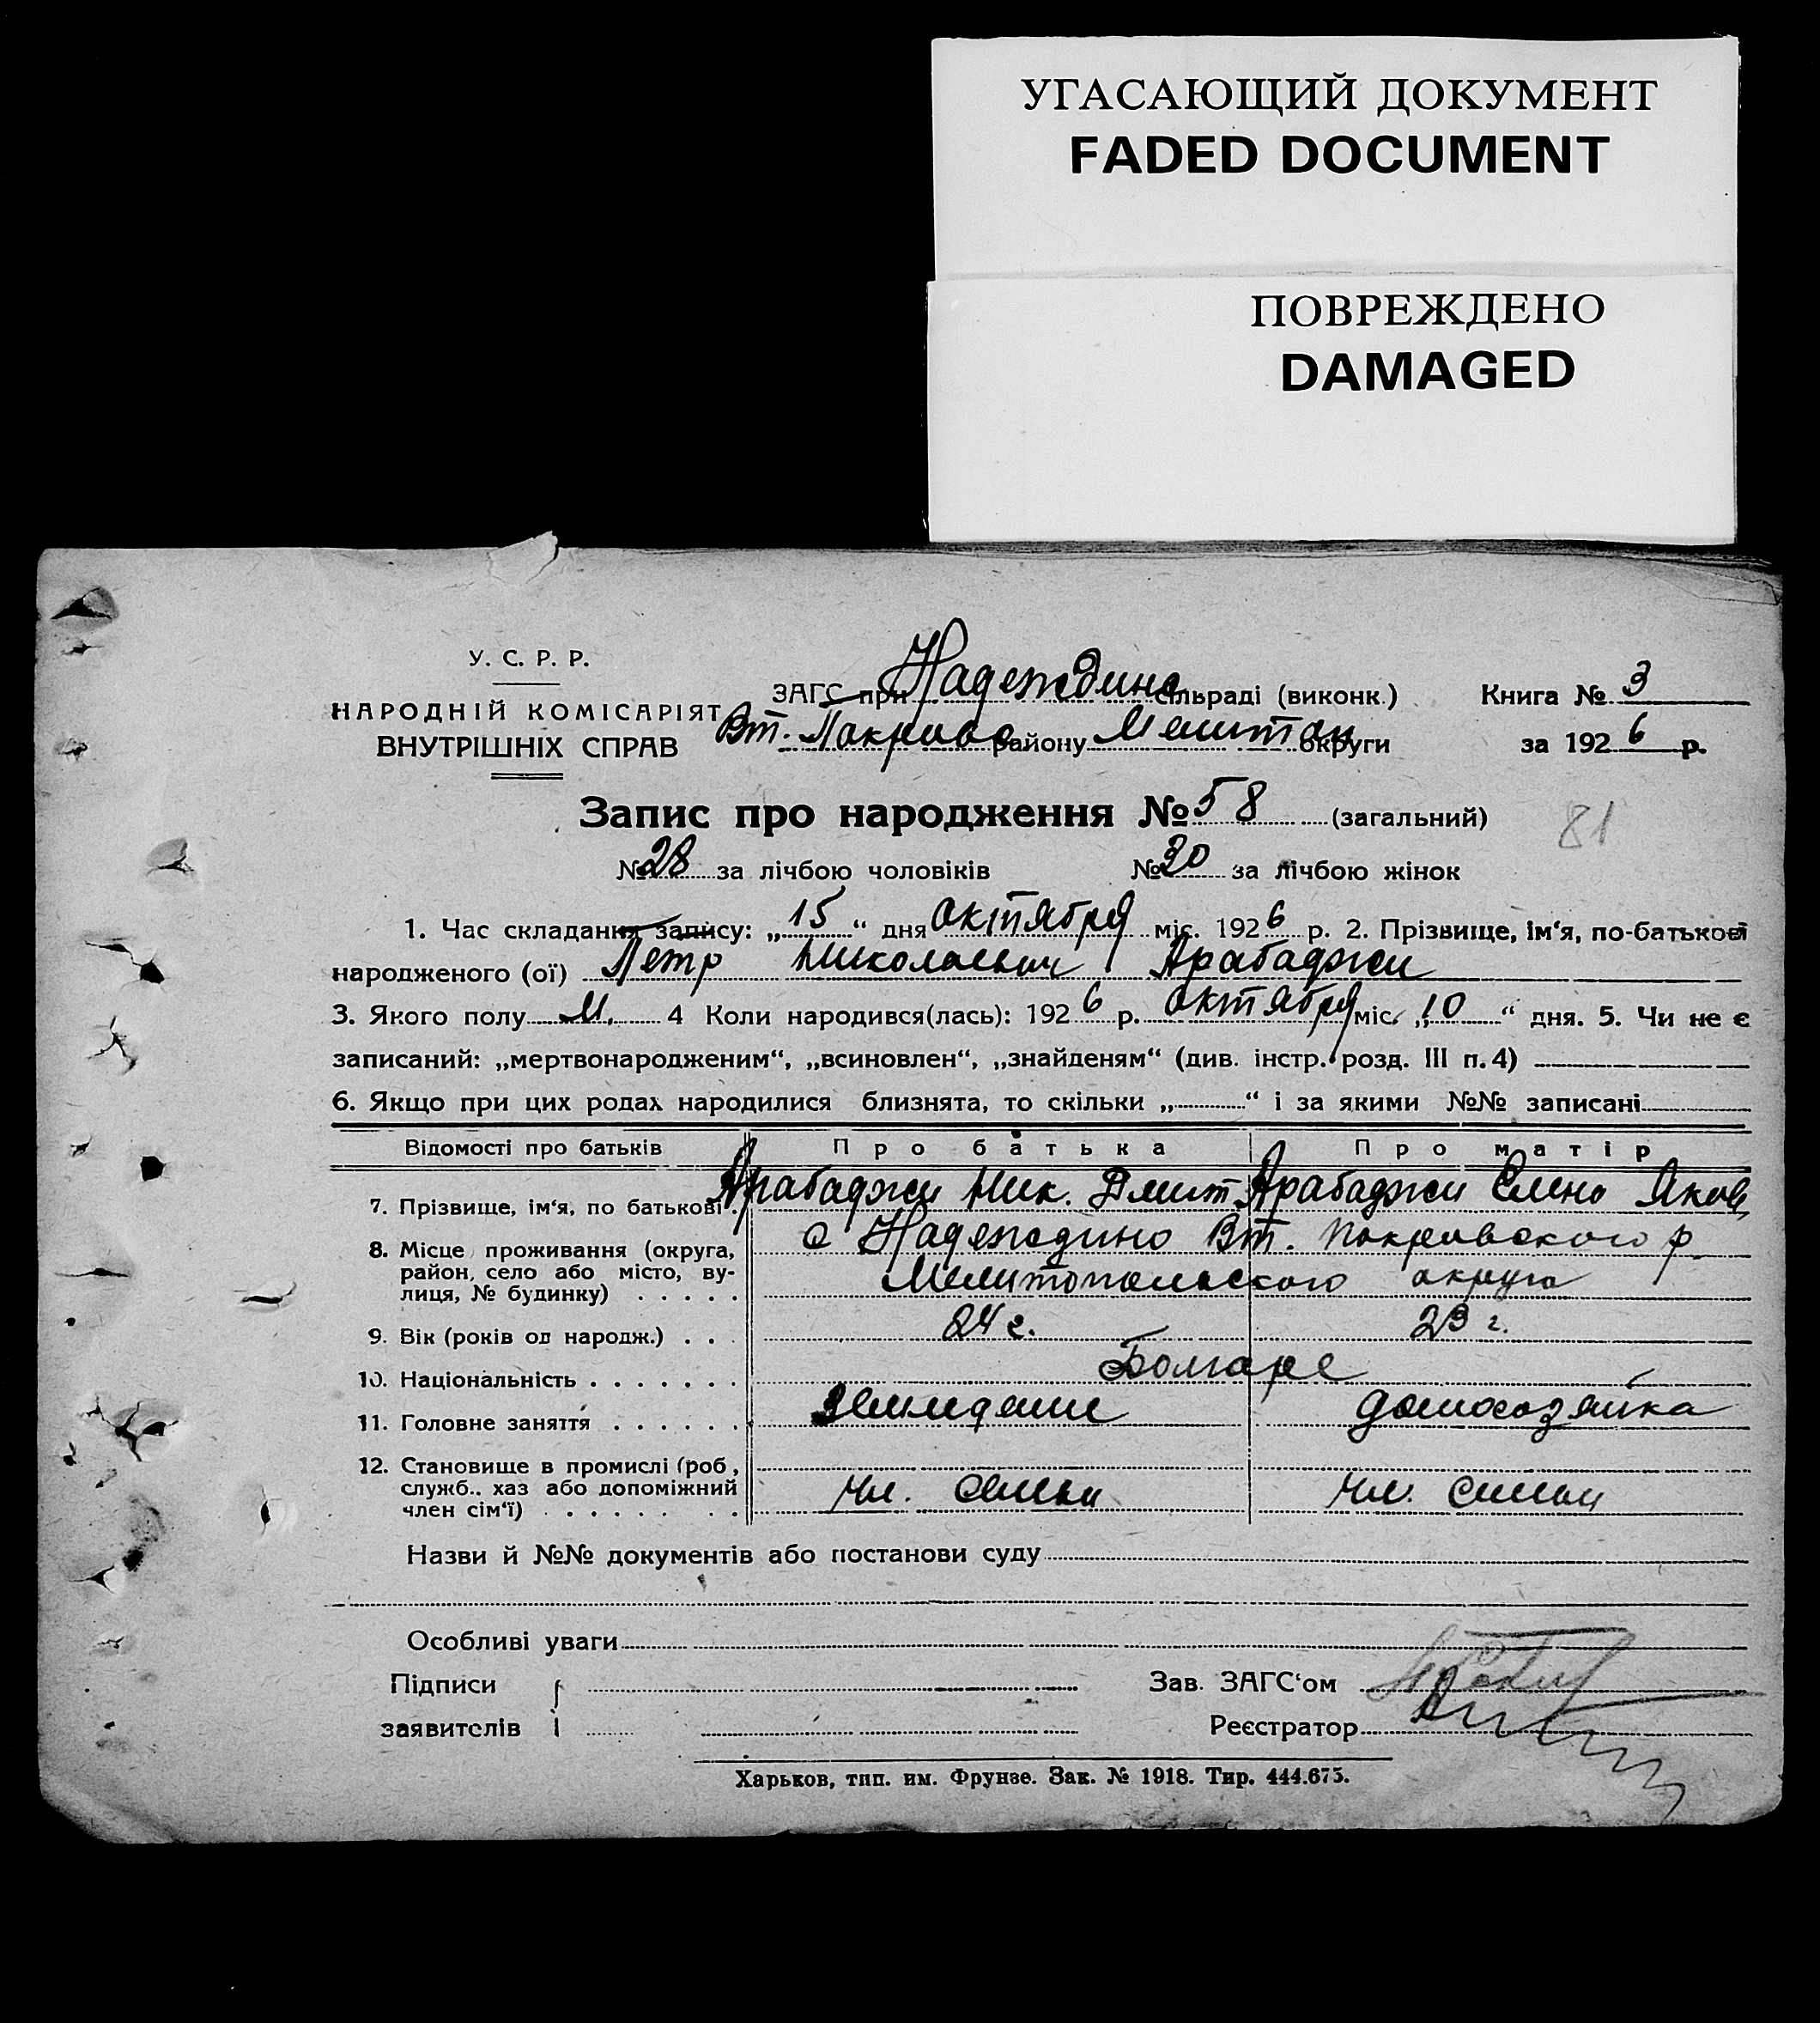 УГАСАЮЩИЙ ДОКУМЕНТ
FADED DOCUMENT
ПОВРЕЖДЕНО
DAMAGED
У. С. Р. Р.
НАРОДНІЙ КОМІСАРІЯТ
ВНУТРІШНІХ СПРАВ
ЗАГС при Надеждинс сільраді (виконк.) Книга № 3
Вт. Покровс району Мелитоп округи за 1926 р.
Запис про народження № 58 (загальний)
81
№ 28 за лічбою чоловіків № 30 за лічбою жінок
1. Час складання запису: „15“ дня октября міс. 1926 р. 2. Прізвище, ім‘я, по-батькові
народженого (ої) Петр Николаевич Арабаджи
3. Якого полу М. 4 Коли народився(лась): 1926 р. октября міс. „10“ дня. 5. Чи не є
записаний: „мертвонародженим“, „всиновлен“, „знайденям“ (див. інстр. розд. III п. 4)
6. Якщо при цих родах народилися близнята, то скільки „ “ і за якими №№ записані
Відомості про батьків Про батька Про матір
7. Прізвище, ім‘я, по батькові . Арабаджи Ник. Дмит. Арабаджи Елена Яков.
8. Місце проживання (округа, район, село або місто, ву-
лиця, № будинку) . . . . . с Надеждино Вт. Покровского р
Мелитопольского округа
9. Вік (років од народж.) . . . 24 г. 23 г.
10. Національність . . . . . . . Болгаре
11. Головне заняття . . . . . . земледелие домохозяйка
12. Становище в промислі (роб,
служб.. хаз або допоміжний
член сім‘ї) . . . . . . . . чл. семьи чл. семьи
Назви й №№ документів або постанови суду
Особливі уваги
Підписи Зав. ЗАГС‘ом
заявителів Реєстратор
Харьков, тип. им. Фрунзе. Зак. № 1918. Тир. 444.675.